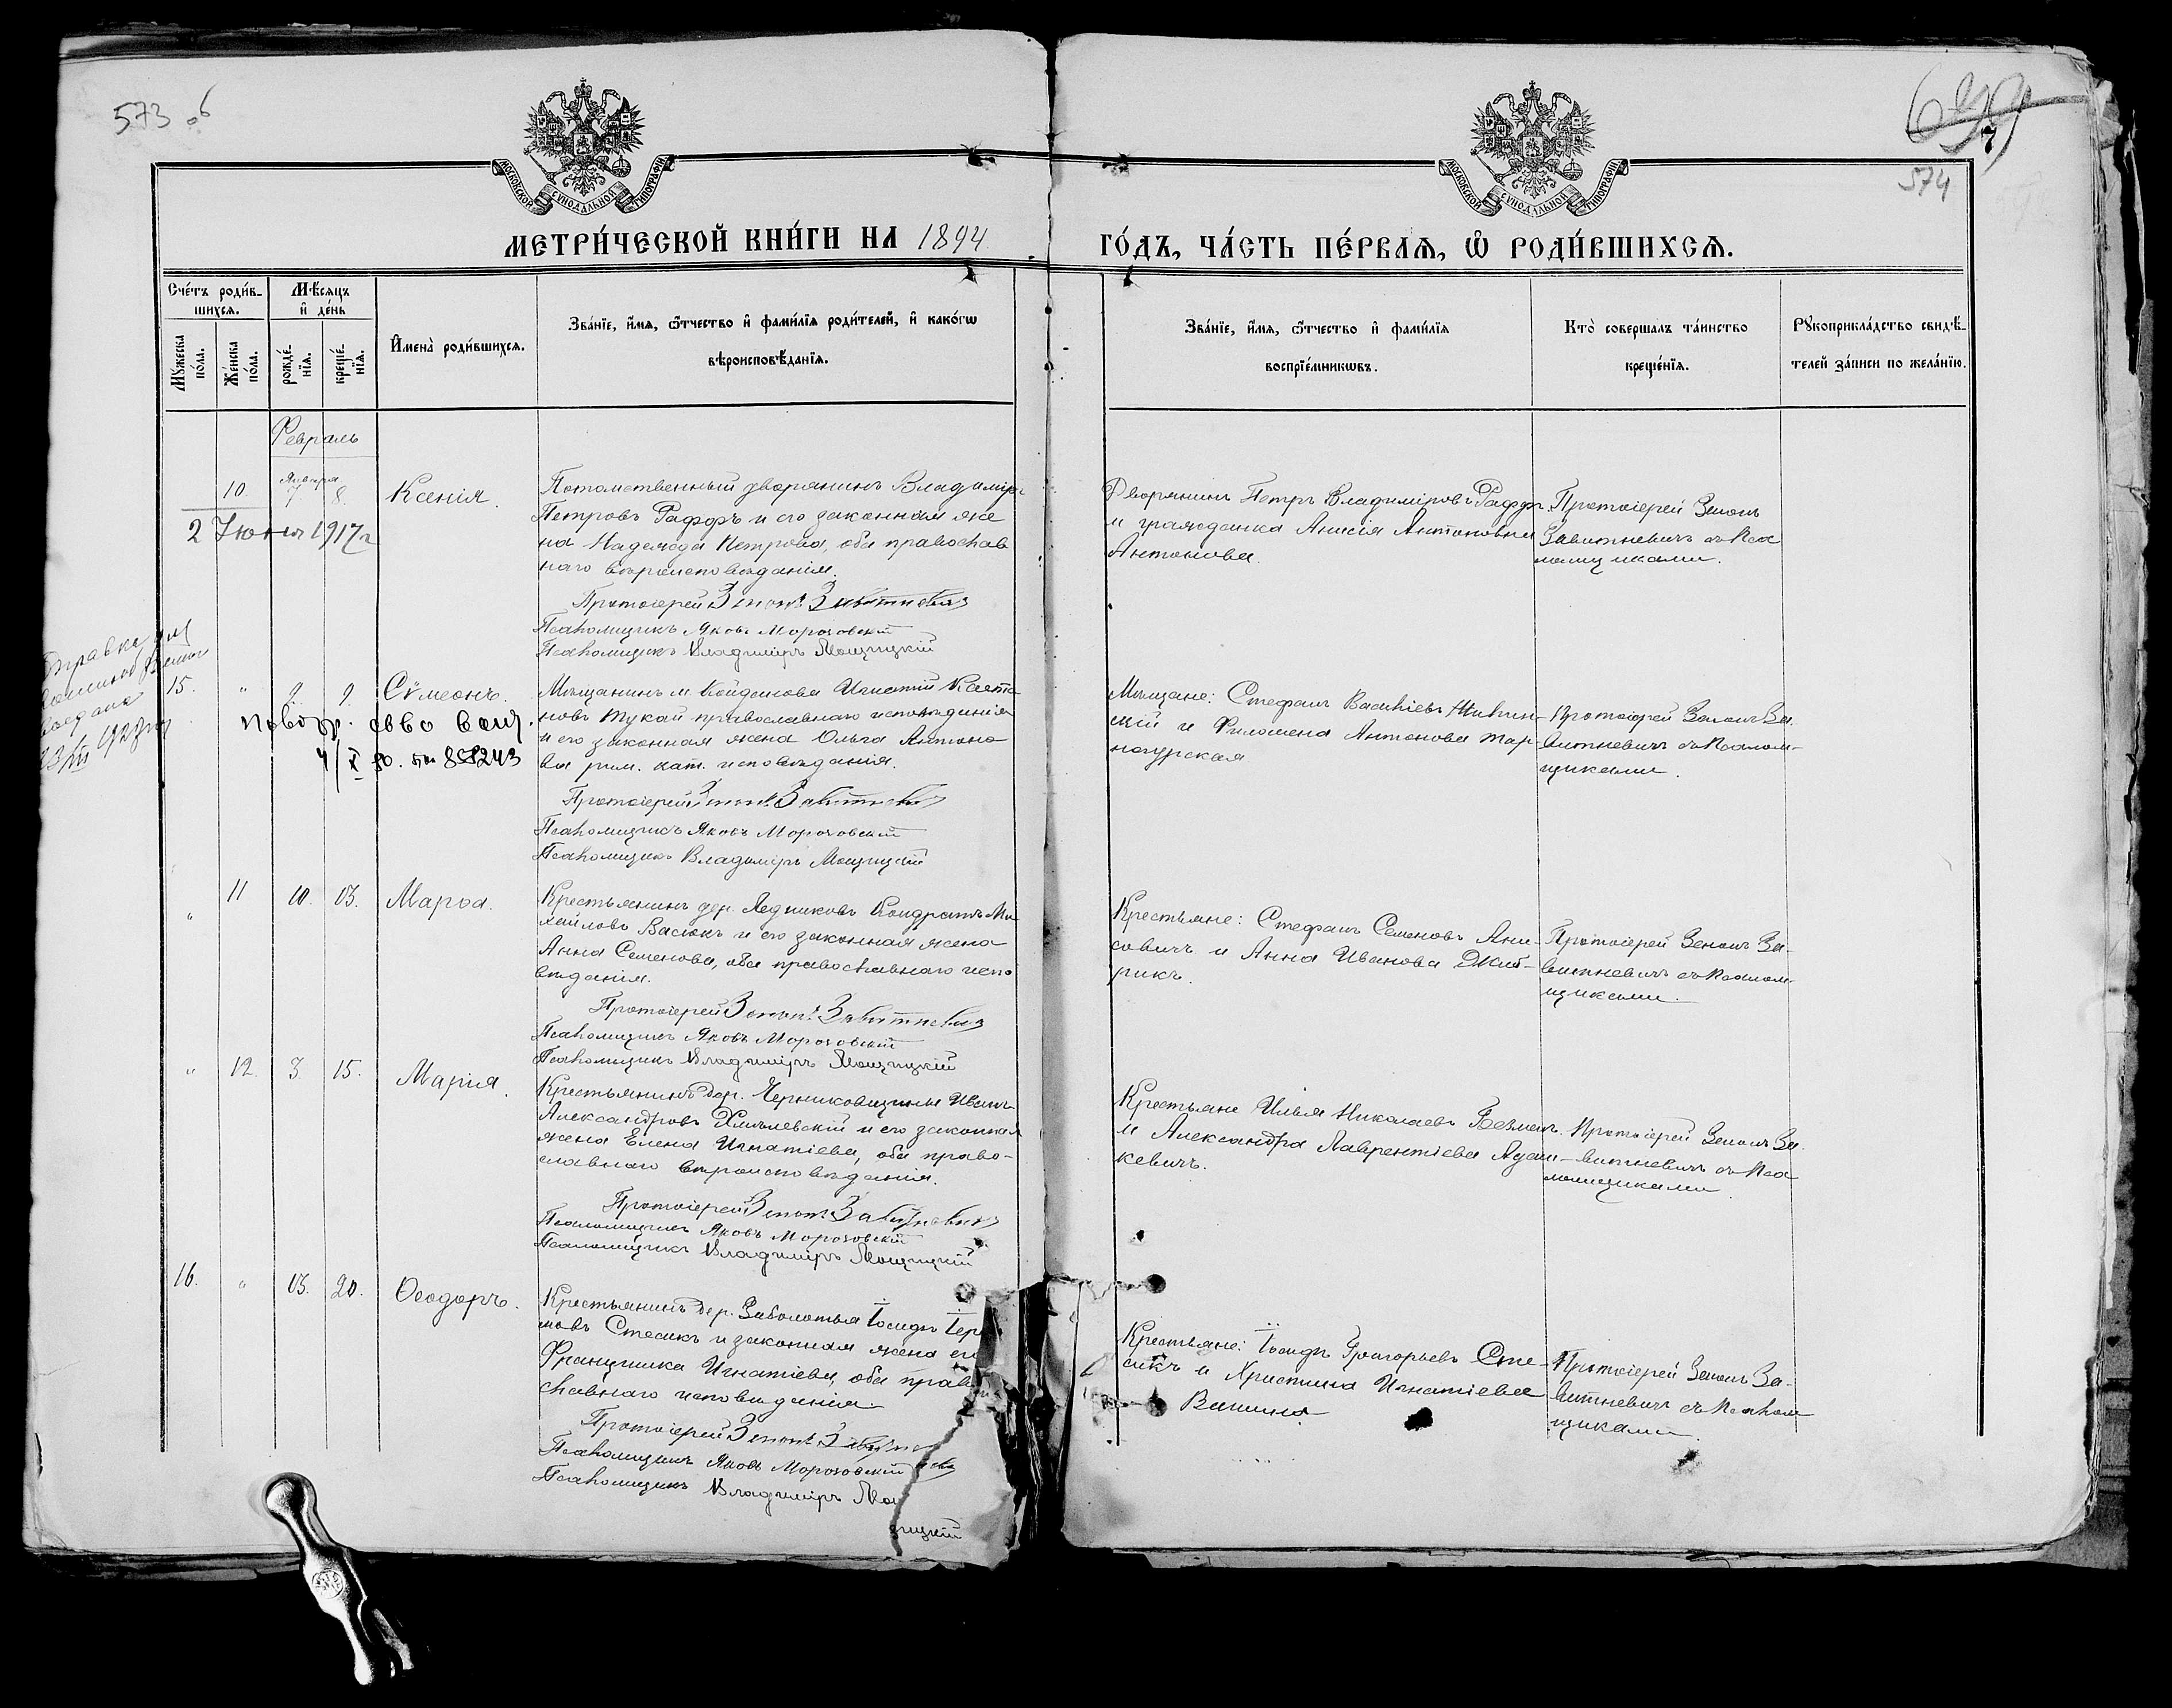 573 об
7
574
МОСКОВСКОЙ СѴНОДАЛЬНОЙ ТИПОГРАФІИ
МОСКОВСКОЙ СѴНОДАЛЬНОЙ ТИПОГРАФІИ
МЕТРИ́ЧЕСКОЙ КНИ́ГИ НА 1894
ГО́ДЪ, ЧА́СТЬ ПЕ́РВАЯ, Ѡ РОДИ́ВШИХСЯ.
Сче́тъ роди́в-
шихся.
Мѣ́сяцъ
и де́нь
Мꙋжеска по́ла.
Же́нска по́ла.
рожде́-
нїя.
креще́-
нїя.
Имена̀ роди́вшихся.
Зва́нїе, и́мя, ѻ҆́тчество и фами́лїя роди́телей, и како́гѡ
вѣроисповѣ́данїя.
Зва́нїе, и́мя, ѻ҆́тчество и фами́лїя
воспрїе́мникѡвъ.
Кто̀ совершалъ та́инство
креще́нїя.
Рꙋкоприкла́дство свидѣ́-
телей за́писи по жела́нїю.
Февраль
10
Января
7 8
Ксенія.
2 Іюня 1917 г
Потомственный дворянинъ Владиміръ
Петровъ Раффъ и его законная же
на Надежда Петрова, оба православ
наго вѣроисповѣданія.
Протоіерей Зенонъ Завитневичъ
Псаломщикъ Яковъ Морозовскій
Псаломщикъ Владиміръ Мощицкій
Дворянинъ Петръ Владиміровъ Раффъ
и гражданка Анисія Антоновна
Антонова.
Протоіерей Зенонъ
Завитневичъ съ Пса
ломщиками.
Справка
выдана
15. " 9. 9. Сѵмеонъ.
повтор. св-во выд.
Мѣщанинъ м. Койданова Игнатій Каэта
новъ Тукай православнаго исповѣданія
и его законная жена Ольга Антоно
ва рим. кат. исповѣданія.
Протоіерей Зенонъ Завитневичъ
Псаломщикъ Яковъ Морозовскій
Псаломщикъ Владиміръ Мощицкій
Мѣщане: Стефанъ Васильевъ
и Филомена Антонова Тар-
ногурская
Протоіерей Зенонъ За-
витневичъ съ Псалом-
щиками.
" 11 10. 13. Марѳа.
Крестьянинъ дер. Ледниковъ Кондратъ Ми
хайловъ Васюкъ и его законная жена
Анна Семенова, оба православнаго испо
вѣданія.
Протоіерей Зенонъ Завитневичъ
Псаломщикъ Яковъ Морозовскій
Псаломщикъ Владиміръ Мощицкій
Крестьяне: Стефанъ Семеновъ Ани-
совичъ и Анна Иванова
рикъ.
Протоіерей Зенонъ За-
витневичъ съ Псалом-
щиками.
" 12. 3. 15. Марія.
Крестьянинъ дер. Черниковщины Иванъ
Александровъ Хмѣлевскій и его законная
жена Елена Игнатіева, оба право-
славнаго вѣроисповѣданія.
Протоіерей Зенонъ Завитневичъ
Псаломщикъ Яковъ Морозовскій
Псаломщикъ Владиміръ Мощицкій
Крестьяне Илья Николаевъ
и Александра Лаврентіева
кевичъ.
Протоіерей Зенонъ За
витневичъ съ Пса
ломщиками.
16. " 13. 20. Ѳеодоръ.
Крестьянинъ дер. Заболотья Іосифъ
Стесикъ и законная жена его
Францишка Игнатіева, оба право
славнаго исповѣданія.
Протоіерей Зенонъ Завитневичъ
Псаломщикъ Яковъ Морозовскій
Псаломщикъ Владиміръ Мощицкій
Крестьяне: Іосифъ Григорьевъ Сте-
сикъ и Христина Игнатіева
Протоіерей Зенонъ За-
витневичъ съ Псалом
щиками.